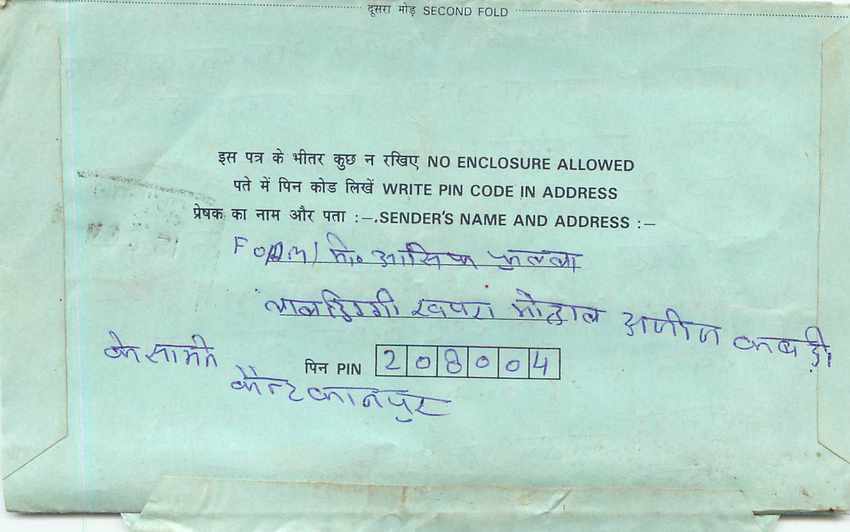 दूसरा मोड़ SECOND FOLD
इस पत्र के भीतर कुछ न रखिए NO ENCLOSURE ALLOWED
पते में पिन कोड लिखें WRITE PIN CODE IN ADDRESS
प्रेषक का नाम और पता :–.SENDER'S NAME AND ADDRESS :–
मि०
लालडिग्गी खपरा मोहाल अजीज कबाड़ी
के सामने
पिन PIN 208004
कैन्ट कानपुर